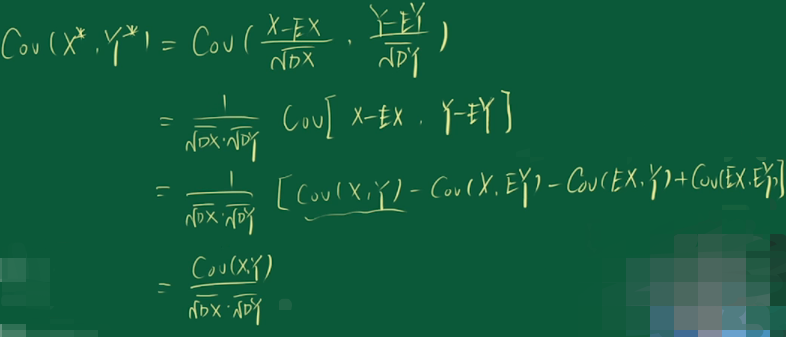 Cov(X*, Y*) = Cov( (X-EX)/√DX , (Y-EY)/√DY )
= 1/(√DX·√DY) Cov[ X-EX , Y-EY ]
= 1/(√DX·√DY) [Cov(X,Y) - Cov(X,EY) - Cov(EX,Y) + Cov(EX,EY)]
= Cov(X,Y)/(√DX·√DY)